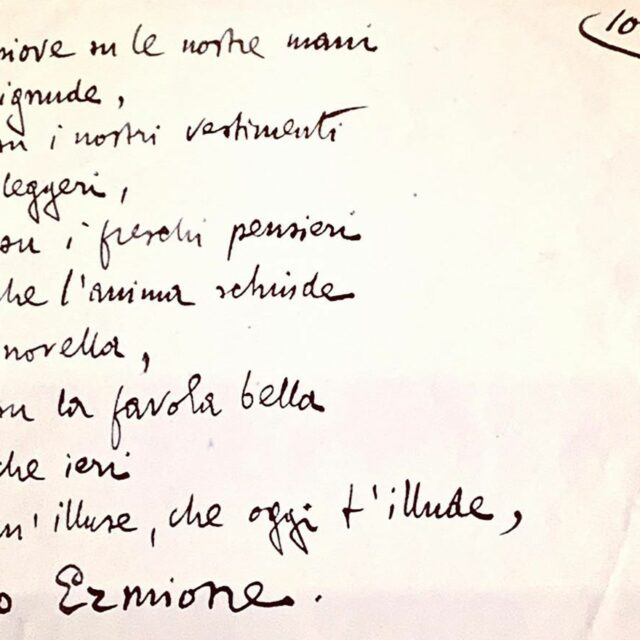 piove su le nostre mani
ignude,
su i nostri vestimenti
leggeri,
su i freschi pensieri
che l'anima schiude
novella,
su la favola bella
che ieri
m'illuse, che oggi t'illude,
o Ermione.
10